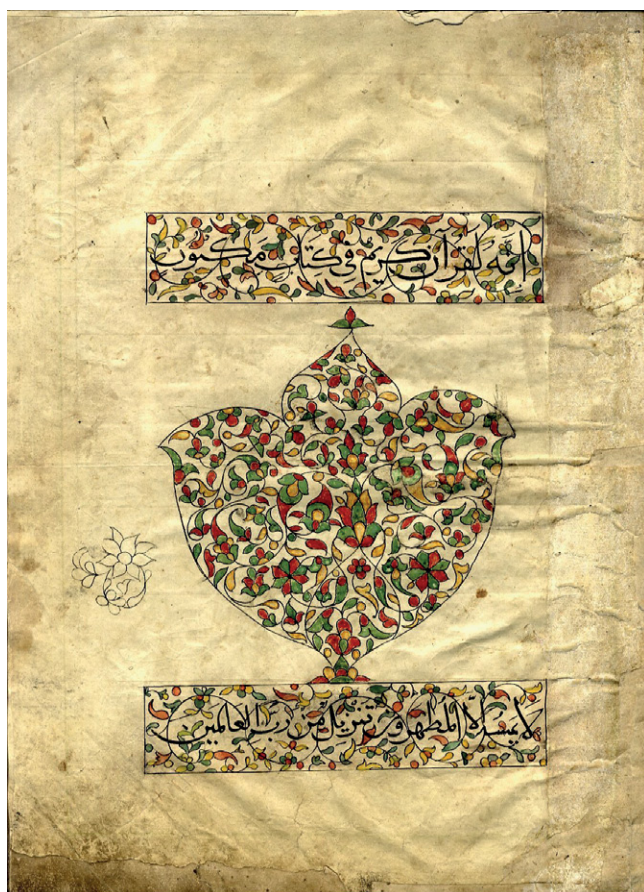 انه لقرآن كريم في كتاب مكنون
لا يمسه إلا المطهرون تنزيل من رب العالمين